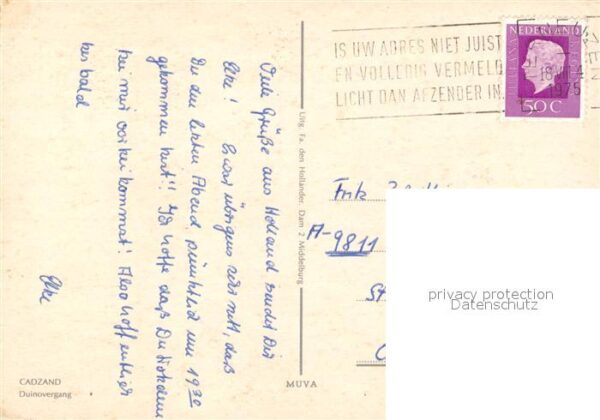 Viele Grüße aus Holland sendet Dir
Elke! Es war übrigens sehr nett, daß
Du den letzten Abend pünktlich um 19 30
gekommen bist!! Ich hoffe daß Du trotzdem
bei mir vorbei kommst! Also hoffentlich
bis bald
Elke
CADZAND
Duinovergang
Uitg. Fa. den Hollander, Dam 2 Middelburg
MUVA
IS UW ADRES NIET JUIST
EN VOLLEDIG VERMELD
LICHT DAN AFZENDER IN
NEDERLAND
JULIANA REGINA
1975
50C
A-9811
privacy protection
Datenschutz